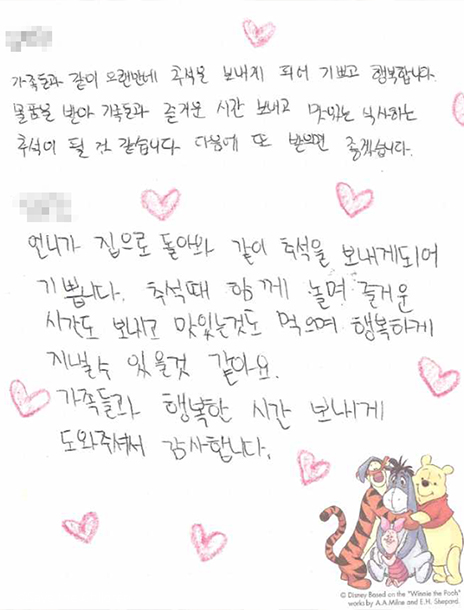 가족들과 같이 오랜만에 추석을 보내게 되어 기쁘고 행복합니다.
물품을 받아 가족들과 즐거운 시간 보내고 맛있는 식사하는
추석이 될 것 같습니다. 다음에 또 받으면 좋겠습니다.
언니가 집으로 돌아와 같이 추석을 보내게되어
기쁩니다. 추석때 함께 놀며 즐거운
시간도 보내고 맛있는것도 먹으며 행복하게
지낼수 있을것 같아요.
가족들과 행복한 시간 보내게
도와주셔서 감사합니다.
© Disney Based on the "Winnie the Pooh"
works by A.A.Milne and E.H. Shepard.